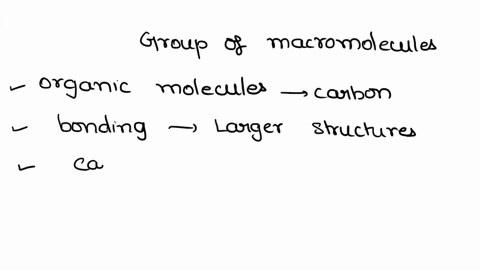 Group of macromolecules
✓ organic molecules → carbon
✓ bonding → Larger structures
✓ ca